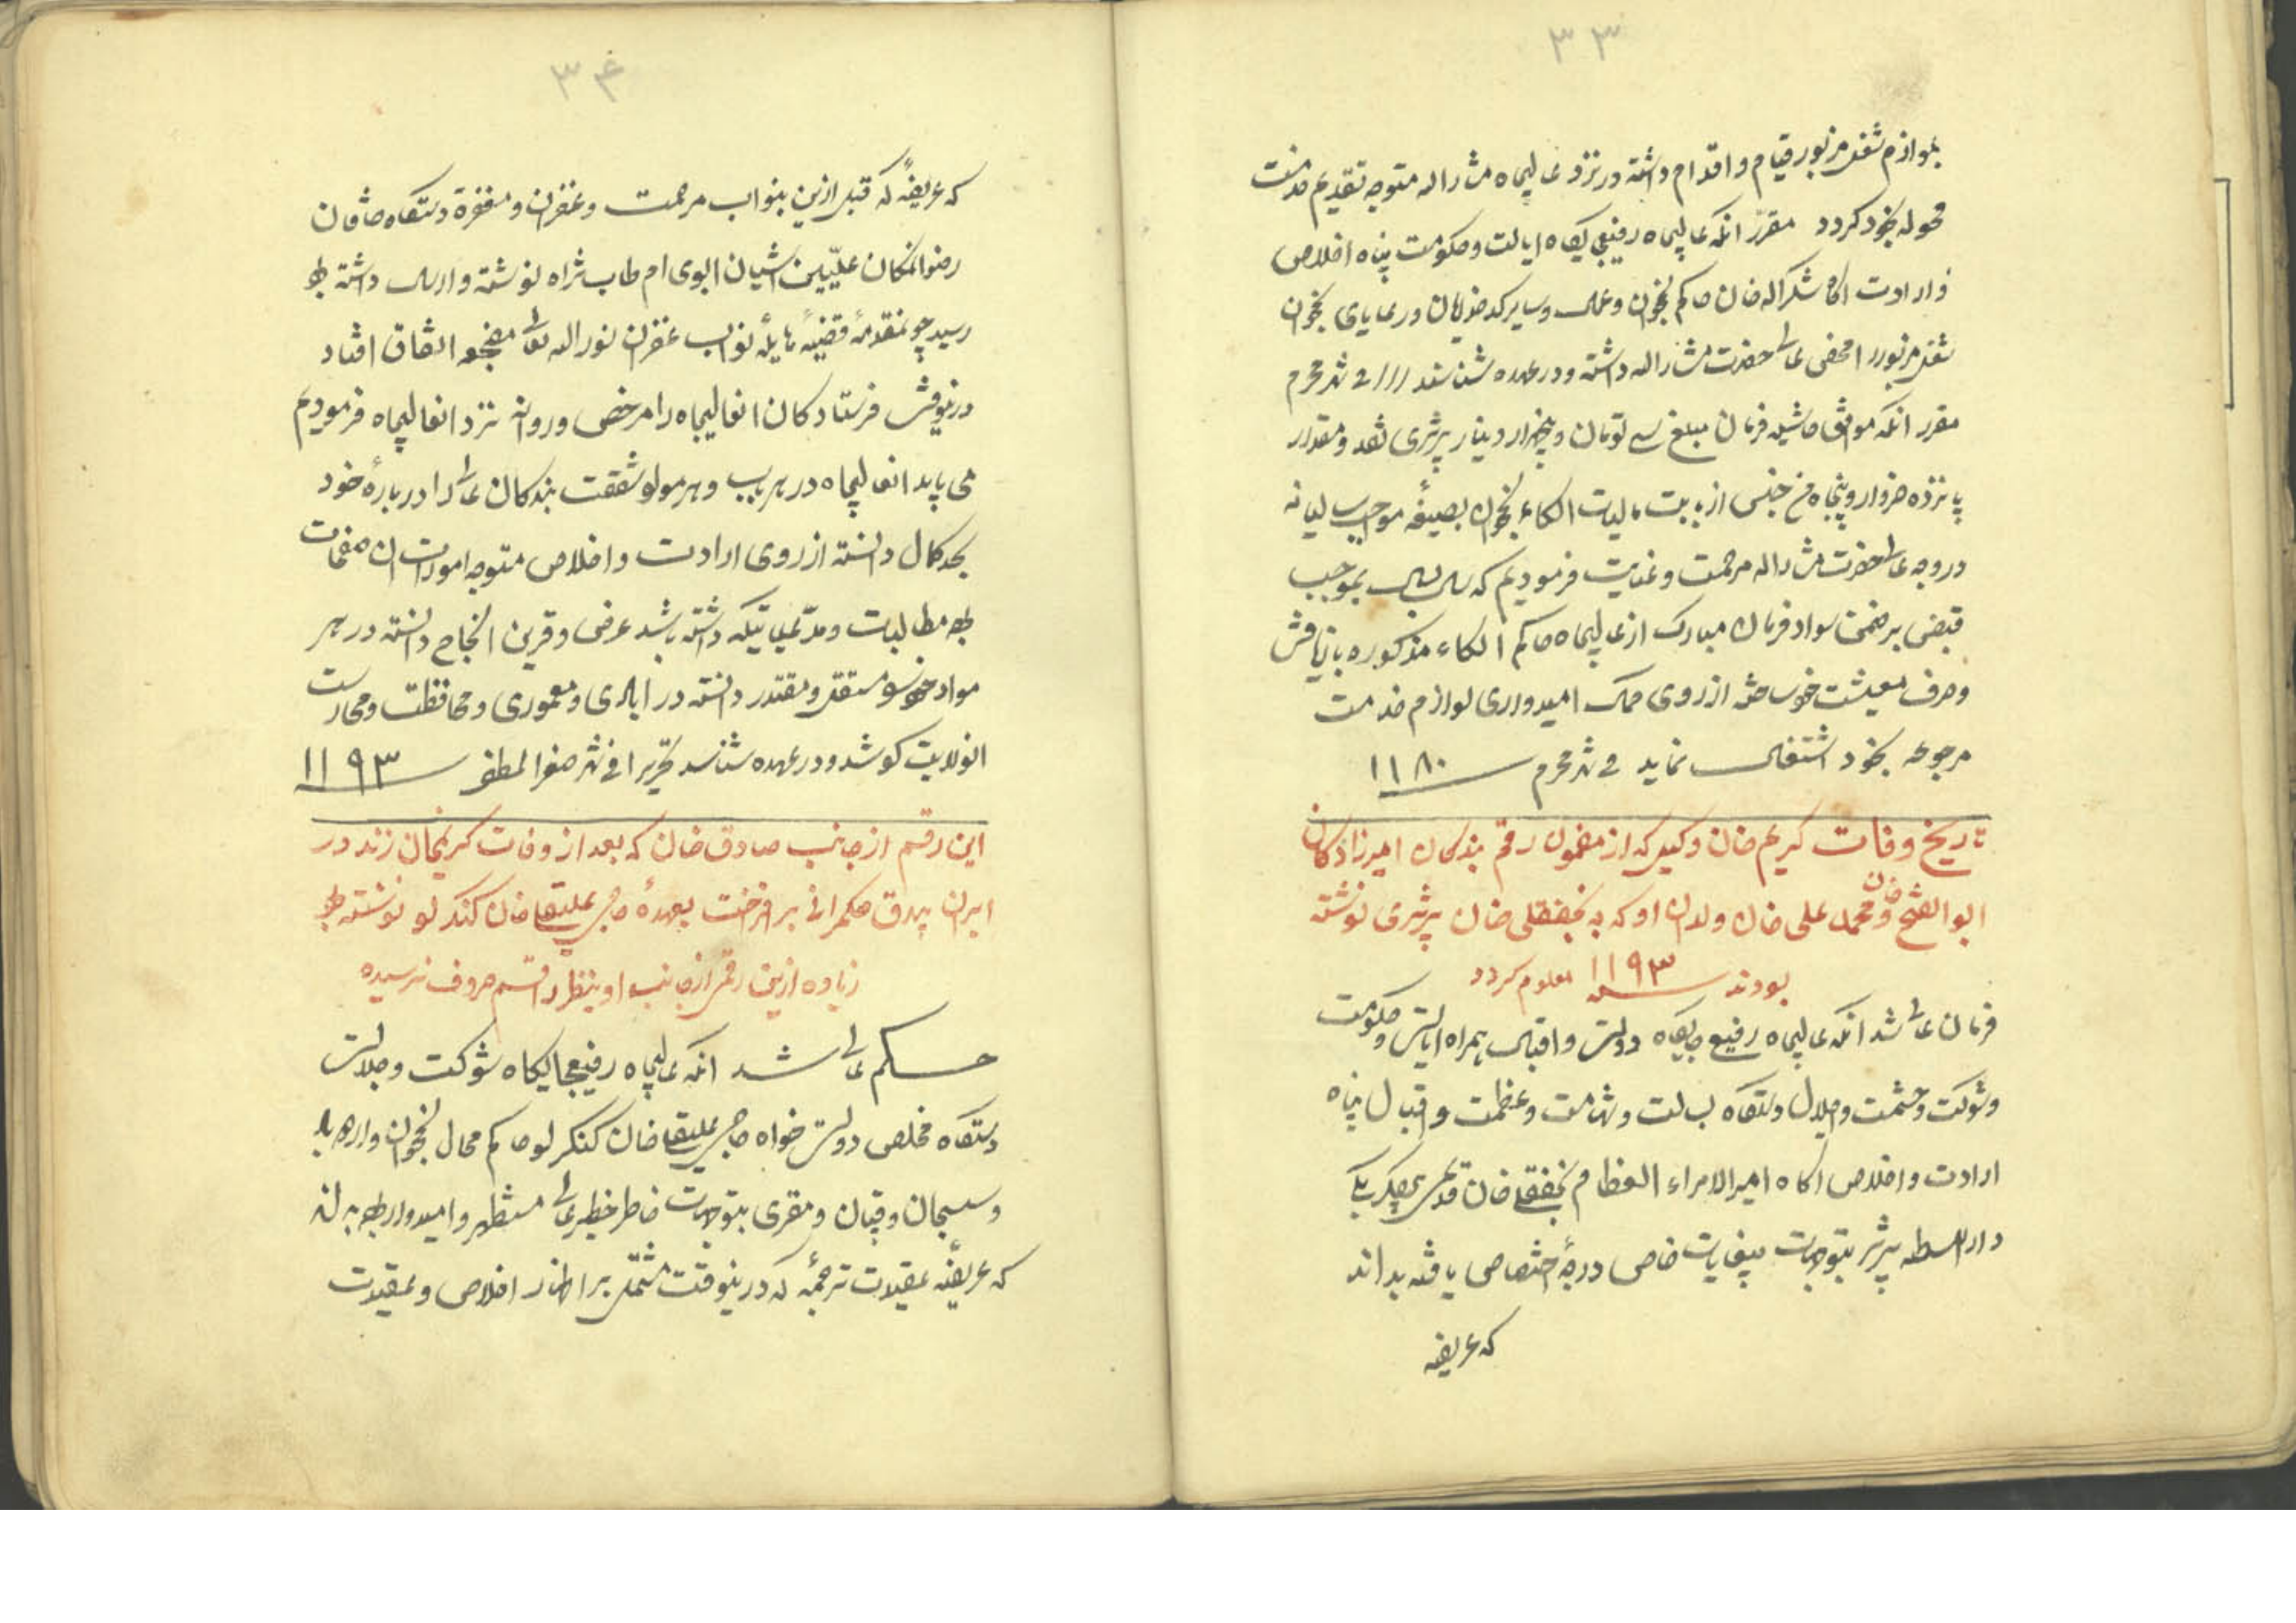 ۳۳
بلوازم شغل مزبور قیام و اقدام داشته در نزد عالیجاه مشارالیه متوجه تقدیم خدمت
محوله بخود گردد مقرر آنکه عالیجاه رفیع جایگاه ایالت و حکومت پناه اخلاص
و ارادت آگاه شکرالله خان حاکم نخجوان و عمال و سایر کدخدایان و رعایای نخجوان
شغل مزبور را مختص عالیحضرت مشارالیه داشته و در عهده شناسند شهر محرم
مقرر آنکه موافق حاشیه فرمان مبلغ سی تومان و پنجهزار دینار تبریزی نقد و مقدار
پانزده خروار و پنجاه من جنس از بابت مالیات الکاء نخجوان بصیغه مواجب سالیانه
در وجه عالیحضرت مشارالیه مرحمت و عنایت فرمودیم که سال بسال بموجب
قبض بر ضمن سواد فرمان مبارک از عالیجاه حاکم الکاء مذکوره بازیافت
و صرف معیشت خود ساخته از روی کمال امیدواری لوازم خدمت
مرجوعه بخود اشتغال نماید فی شهر محرم سنه ۱۱۸۰
تاریخ وفات کریم خان وکیل که از مضمون رقم بندگان امیرزادگان
ابوالفتح خان و محمد علی خان ولدان او که به نجفقلی خان تبریزی نوشته
بودند سنه ۱۱۹۳ معلوم گردد
فرمان عالی شد آنکه عالیجاه رفیع جایگاه دولت و اقبال همراه ایالت و حکومت
و شوکت و حشمت و اجلال دستگاه بسالت و شهامت و عظمت و اقبال پناه
ارادت و اخلاص آگاه امیرالامراء العظام نجفقلی خان بیگلربیگی
دارالسلطنه تبریز بتوجهات بیغایات خاص درجه اختصاص یافته بداند
که عریضه
۳۴
که عریضهٔ که قبل ازین بنواب مرحمت و غفران و مغفرة دستگاه خاقان
رضوانمکان علیین آشیان ابوی ام طاب ثراه نوشته و ارسال داشته بود
رسید چو مقدمهٔ قضیهٔ هایلهٔ نواب غفران نورالله تعالی مضجعه اتفاق افتاد
درینوقت فرستادگان آنعالیجاه را مرخص و روانه نزد آنعالیجاه فرمودیم
می باید آنعالیجاه در هر باب و هر مواد شفقت بندگان عالی را دربارهٔ خود
بحد کمال دانسته از روی ارادت و اخلاص متوجه امورات آن صفحات
بوده مطالبات و مدعیاتیکه داشته باشد عرض و قرین انجاح دانسته در هر
مواد خود را مستقل و مقتدر دانسته در آبادی و معموری و محافظت و محارست
آنولایت کوشد و در عهده شناسد تحریرا فی شهر صفر المظفر سنه ۱۱۹۳
این رقم از جانب صادق خان که بعد از وفات کریمخان زند در
ایران بیدق حکمرانی برافراخت بعهدهٔ حاجی علیقلی خان کنگرلو نوشته بود
زیاده ازین رقمی از جانب او بنظر راقم حروف نرسیده
حکم عالی شد آنکه عالیجاه رفیعجایگاه شوکت و جلالت
دستگاه مخلص دولت خواه حاجی علیقلی خان کنگرلو حاکم محال نخجوان و اردوباد
و سیسجان و قپان و مقری بتوجهات خاطر خطیر عالی مستظهر و امیدوار بوده بداند
که عریضه عقیدت ترجمهٔ که درینوقت مشتمل بر اظهار اخلاص و عقیدت